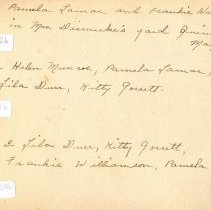 Pamela Lamar and Frankie W
in Mrs. Dismuke's yard Quin
Ma
Helen Muncoe, Pamela Lamar,
Lila Durr, Kitty Gossett.
Lila Durr, Kitty Gossett,
Frankie Williamson, Pamela